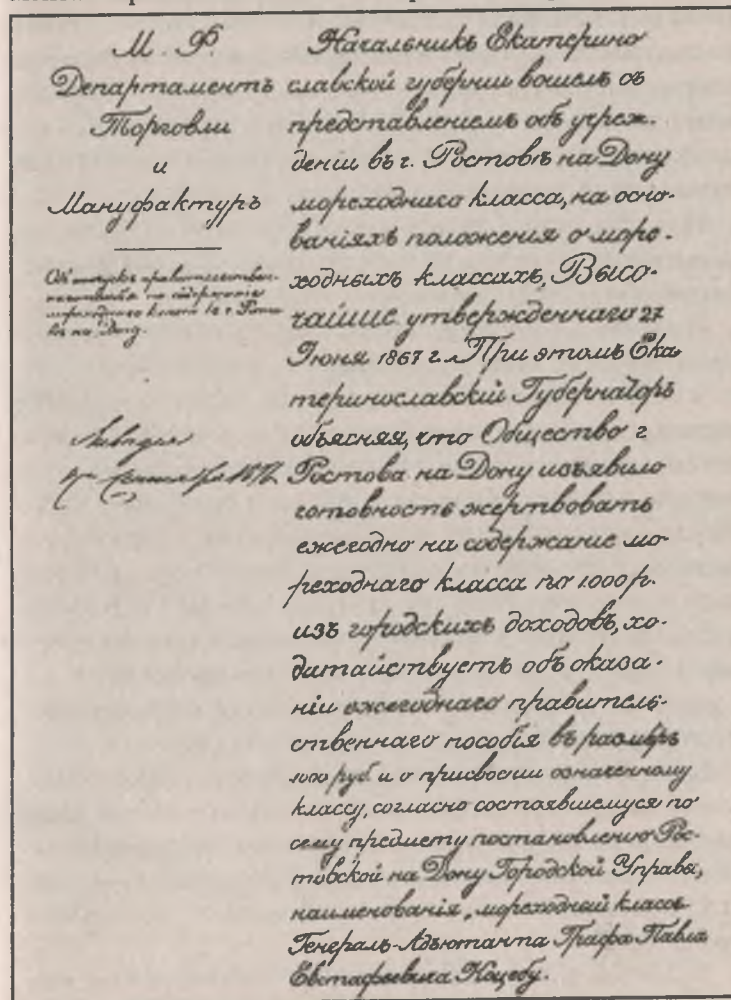 М. Ф.
Департаментъ
Торговли
и
Мануфактуръ
Объ отпускѣ правительствен.
пособія на содержаніе
мореходнаго класса въ г. Росто
вѣ на Дону.
Ливадія
Сентября 1872
Начальникъ Екатерино
славской губерніи вошелъ съ
представленіемъ объ учреж.
деніи въ г. Ростовѣ на Дону
мореходнаго класса, на осно-
ваніяхъ положенія о море.
ходныхъ классахъ, Высо-
чайше утвержденнаго 27
Іюня 1867 г. При этомъ Ека
теринославскій Губернаторъ
объясняя, что Общество г
Ростова на Дону изъявило
готовность жертвовать
ежегодно на содержаніе мо
реходнаго класса по 1000 р.
изъ городскихъ доходовъ, хо-
датайствуетъ объ оказа-
ніи ежегоднаго правитель-
ственнаго пособія въ размѣрѣ
1000 руб. и о присвоеніи означенному
классу, согласно состоявшемуся по
сему предмету постановленію Рос-
товской на Дону Городской Управы,
наименованія „мореходный классъ
Генералъ-Адъютанта Графа Павла
Евстафьевича Коцебу.